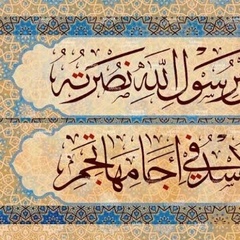 برَسُولِ اللهِ نُصْرَتُهُ
في آجَامِهَا تَجِمِ